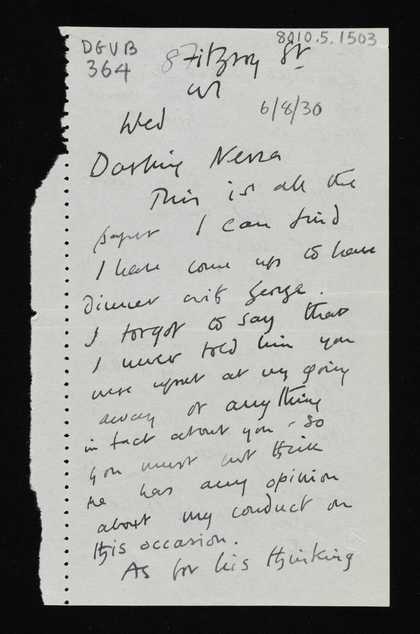 DGVB
364
8010.5.1503
8 Fitzroy St
W1
6/8/30
Wed
Darling Nessa
This is all the
paper I can find
I have come up to have
dinner with George.
I forgot to say that
I never told him you
were upset at my going
away or anything
in fact about you - so
you must not think
he has any opinion
about my conduct on
this occasion.
As for his thinking